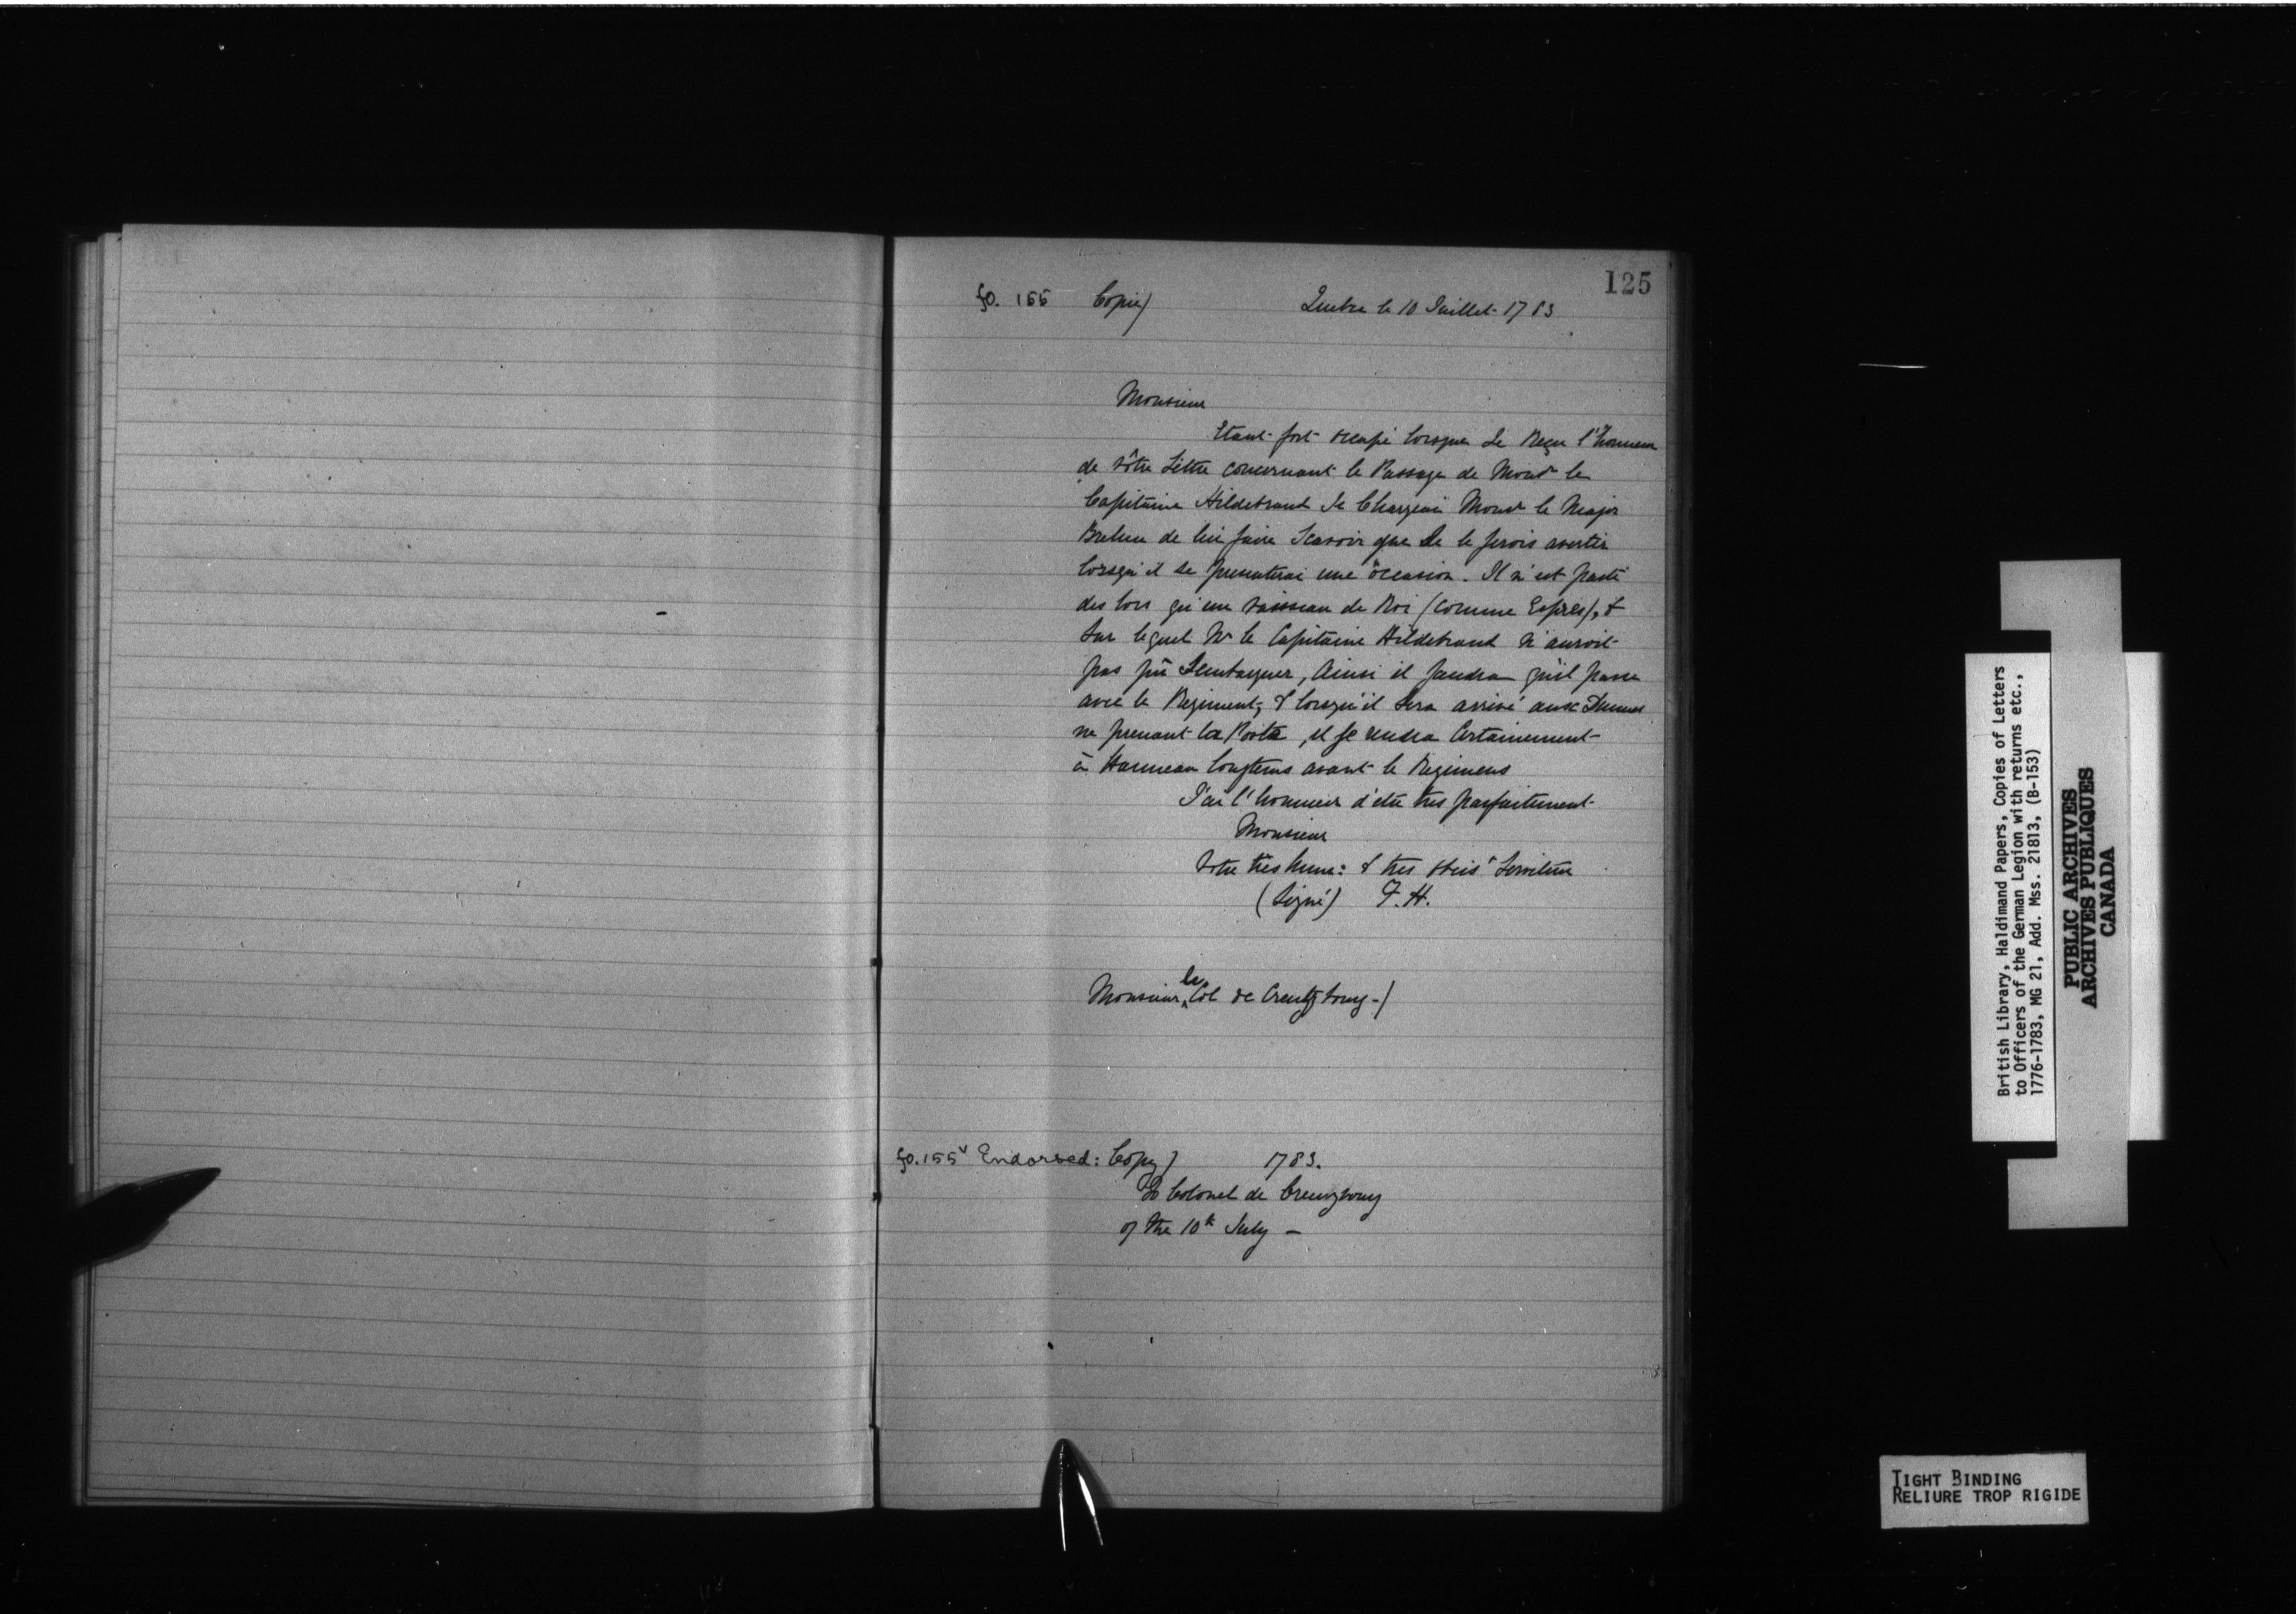 125
fo. 155 Copie) Quebec le 10 Juillet 1783
Monsieur
Etant fort occupé lorsque Je Reçu l'honneur
de vôtre Lettre concernant le Passage de Monsr le
Capitaine Hildebrand Je Chargeai Monsr le Major
Brehm de lui faire Scavoir que Je le ferois avertir
lorsqu'il se presenterai une occasion. Il n'est parti
des lors qu'un Vaisseau de Roi (comme Exprès), &
Sur lequel Mr le Capitaine Hildebrand n'auroit
pas pû Sembarquer, Ainsi il faudra qu'il passe
avec le Regiment, & lorsqu'il Sera arrivé aux Dunes
ne prenant la Poste, il se rendra Certainement
à Hanneau longtems avant le Regiment
J'ai l'honneur d'etre tres parfaitement
Monsieur
Votre très hum: & tres obeist Serviteur
(Signé) F. H.
Monsieur le Col de Creutzbourg -)
fo. 155v Endorsed: Copy) 1783.
To Colonel de Creuzbourg
of the 10th July -
British Library, Haldimand Papers, Copies of Letters
to Officers of the German Legion with returns etc.,
1776-1783, MG 21, Add. Mss. 21813, (B-153)
PUBLIC ARCHIVES
ARCHIVES PUBLIQUES
CANADA
TIGHT BINDING
RELIURE TROP RIGIDE